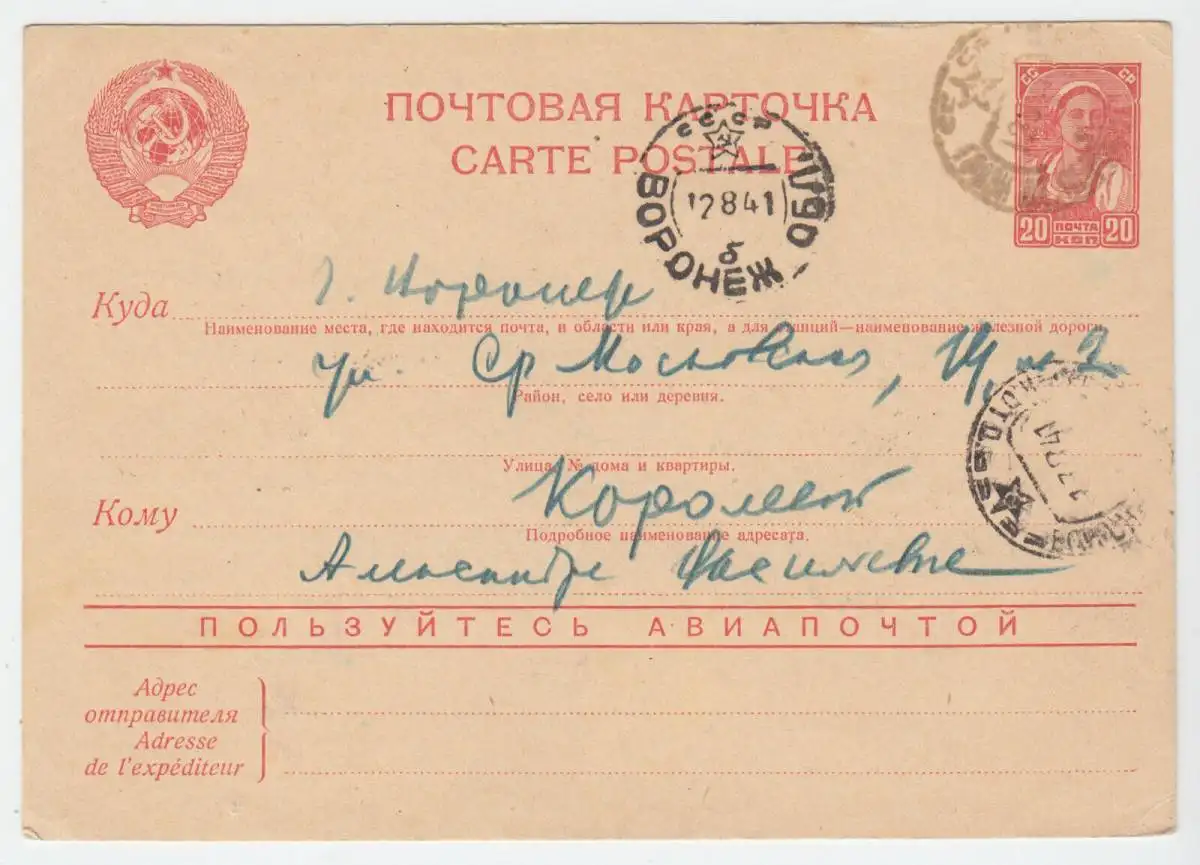 ПОЧТОВАЯ КАРТОЧКА
CARTE POSTALE
СС СР
20 ПОЧТА 20
КОП
СССР
12 8 41
б
ВОРОНЕЖ
Куда г. Воронеж
Наименование места, где находится почта, и области или края, а для станций—наименование железной дороги
ул. Ср Московская, 14,
Район, село или деревня.
Улица, № дома и квартиры.
Кому Королевой
Подробное наименование адресата.
Александре Васильевне
ПОЛЬЗУЙТЕСЬ АВИАПОЧТОЙ
Адрес
отправителя
Adresse
de l'expéditeur